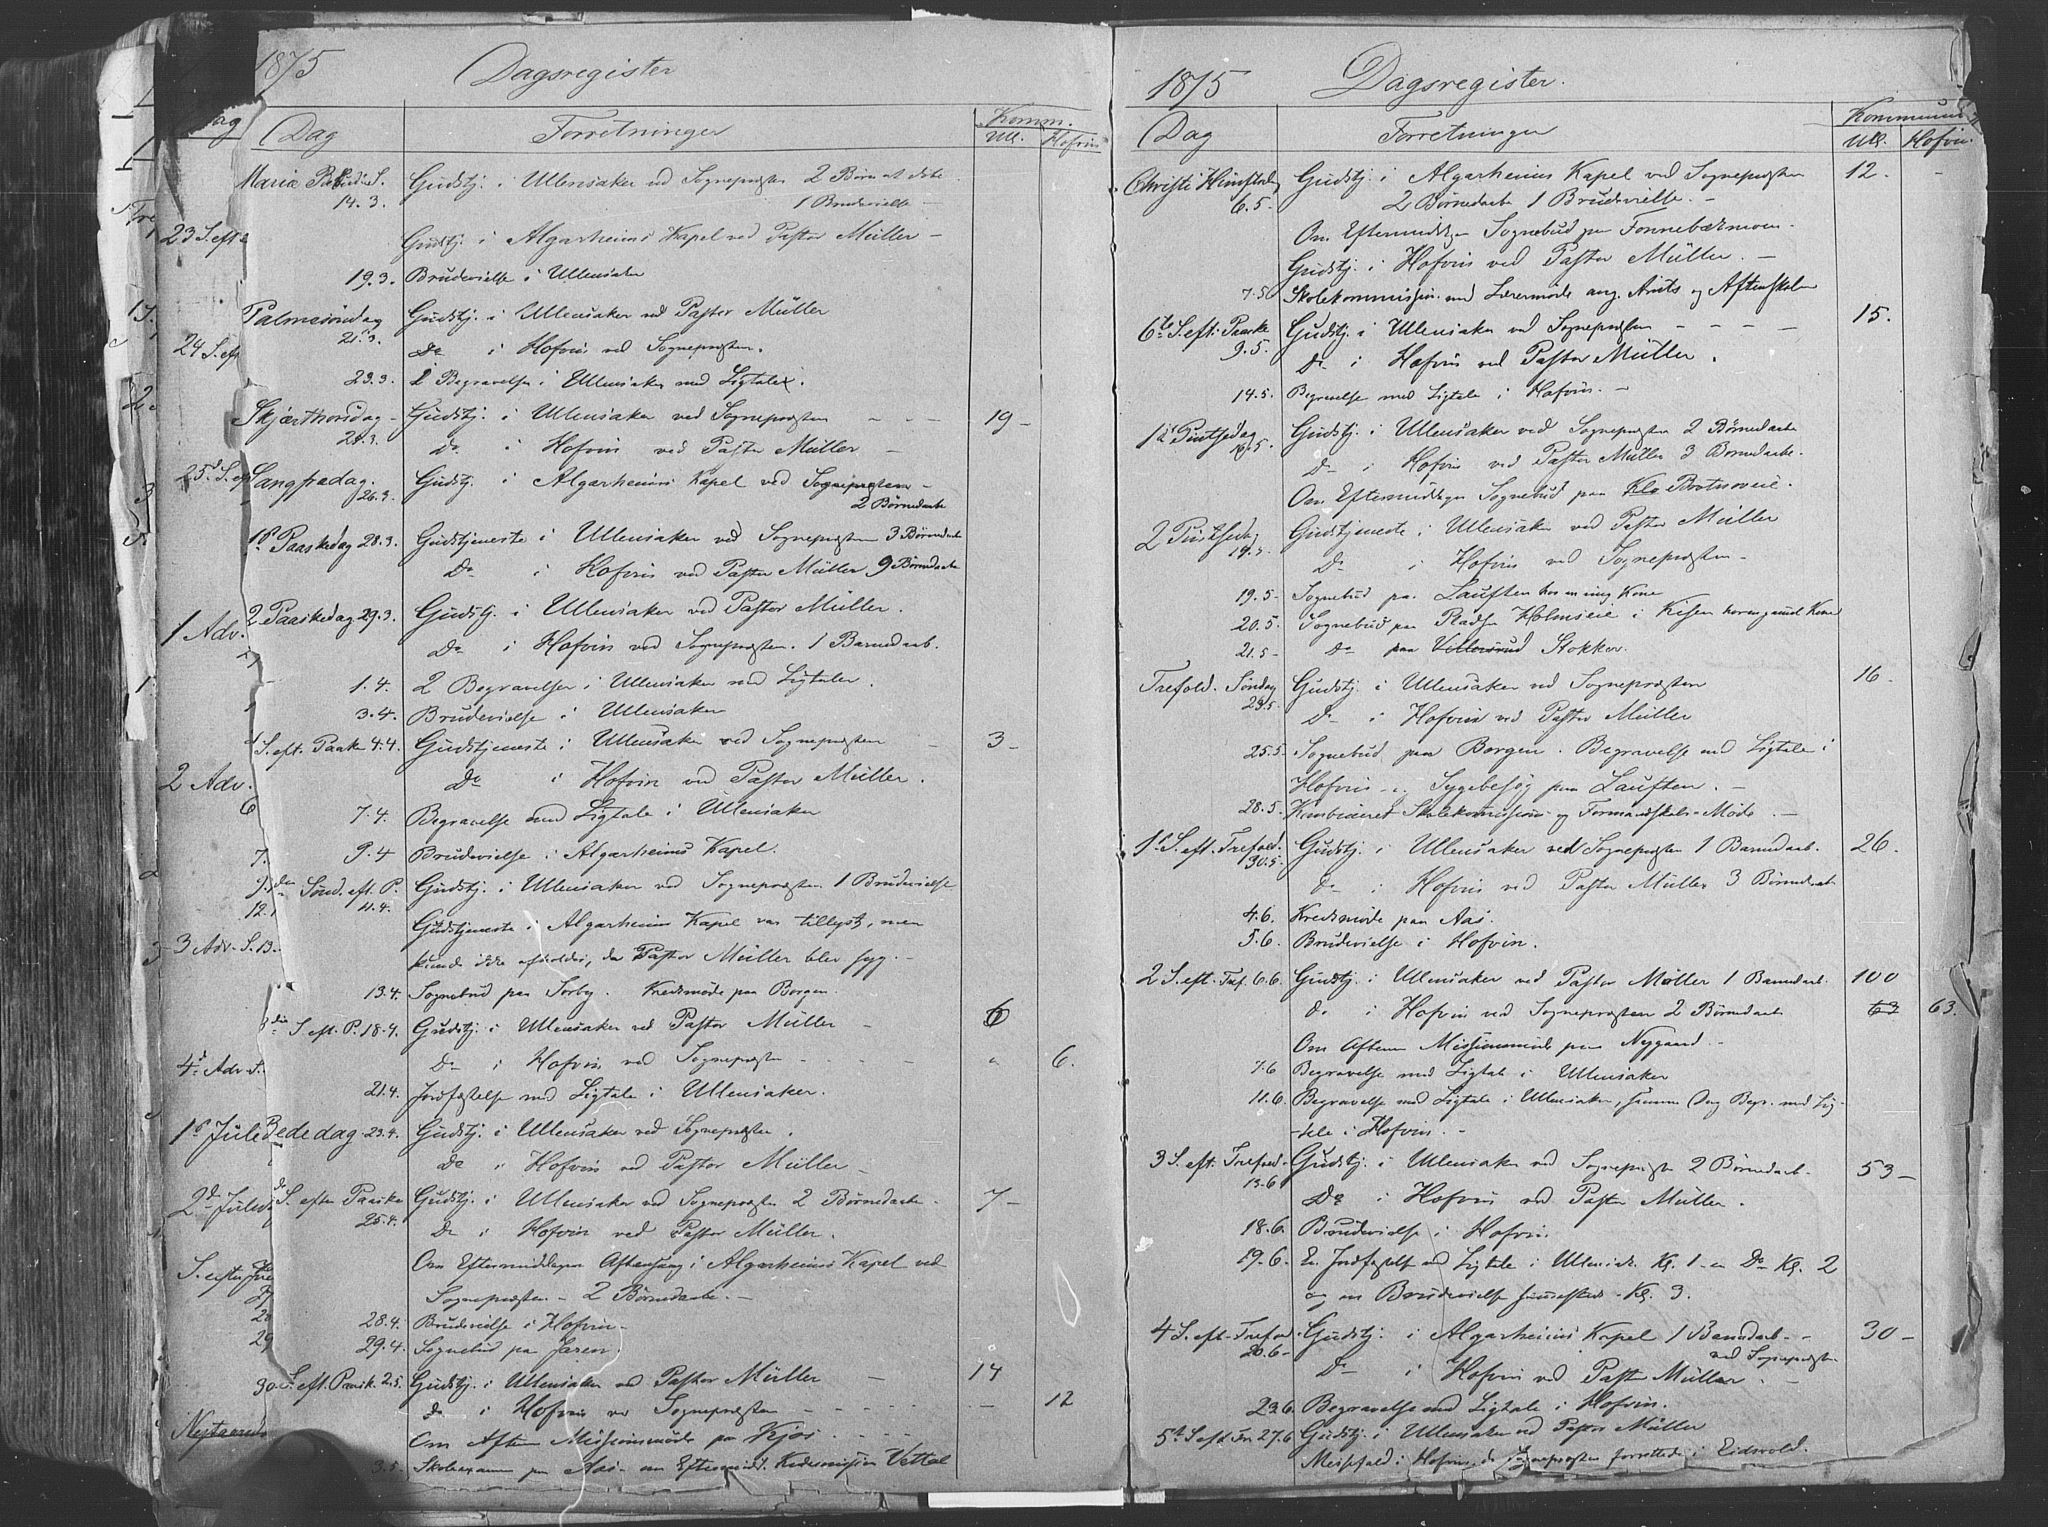 1875 Dagsregister
Dag Forretninger Komm.
Ull. Hofvin
Mariæ Gudstj. i Ullensaker ved Sognepræsten 2 Børnedåbe
14.3. 1 Brudevielse —
Gudstj. i Algarheims Kapel ved Pastor Müller —
19.3. Brudevielse i Ullensaker
Palmesöndag Gudstj. i Ullensaker ved Pastor Müller
21.3. Do i Hofvin ved Sognepræsten.
23.3. Begravelse i Ullensaker med Ligtale.
Skjærthorsdag — Gudstj. i Ullensaker ved Sognepræsten — — — 19 —
Do i Hofvin ved Pastor Müller —
Langfredag. 26.3. Gudstj. i Algarheims Kapel ved Sognepræsten —
2 Börnedaabe
1s Paaskedag 28.3. Gudstjeneste i Ullensaker ved Sognepræsten 3 Börnedaabe
Do i Hofvin ved Pastor Müller 9 Börnedaabe
2 Paaskedag 29.3. Gudstj. i Ullensaker ved Pastor Müller.
Do i Hofvin ved Sognepræsten. 1 Barnedaab.
1.4. 2 Begravelser i Ullensaker med Ligtaler.
3.4. Brudevielse i Ullensaker
S. eft. Paaske 4.4. Gudstjeneste i Ullensaker ved Sognepræsten — 3 —
Do i Hofvin ved Pastor Müller.
7.4. Begravelse med Ligtale i Ullensaker
9.4 Brudevielse i Algarheims Kapel.
Sönd. eft. P. Gudstj. i Ullensaker ved Sognepræsten 1 Brudevielse
11.4. Gudstjeneste i Algarheims Kapel var tillyst, men
kunde ikke afholdes, da Pastor Müller blev syg. —
13.4. Sognebud paa Sörby. Kredsmöde paa Borgen.
S. eft. P. 18.4. Gudstj. i Ullensaker ved Pastor Müller —
Do i Hofvin ved Sognepræsten — — — " 6.
21.4. Jordfæstelse med Ligtale i Ullensaker.
Bededag 23.4. Gudstj. i Ullensaker ved Sognepræsten.
Do i Hofvin ved Pastor Müller —
S. efter Paaske Gudstj. i Ullensaker ved Sognepræsten 2 Börnedaabe — 7 —
25.4. Do i Hofvin ved Pastor Müller.
Om Eftermiddagen Aftensang i Algarheims Kapel ved
Sognepræsten — 2 Börnedaabe. —
28.4. Brudevielse i Hofvin —
29.4. Sognebud paa Jaren.
S. eft. Paask. 2.5. Gudstj. i Ullensaker ved Pastor Müller — 14
Do i Hofvin ved Sognepræsten — — — 12
Om Aftenen Missionsmöde paa Kjos — — —
3.5. Skoleexamen paa Aas —
23 S. eft.
24 S. eft
25d S. eft
1 Adv.
2 Adv.
6
7.
12.1
3 Adv. S. 13.
4d Adv. S.
1s Jule
2d Juled
S. efter
28
29
30
1875 Dagsregister.
Dag Forretninger Kommun
Ull. Hofvin.
Christi Himfartsdag Gudstj. i Algarheims Kapel ved Sognepræsten 12. -
6.5. 2 Börnedaabe 1 Brudevielse. —
Om Eftermiddagen Sognebud paa Fonnebækmoen.
Gudstj. i Hofvin ved Pastor Müller. —
7.5 Skolekommission med Lærermöde ang. Amts og Aftenskolen
6te S. eft. Paaske Gudstj. i Ullensaker ved Sognepræsten — — — — 15.
9.5. Do i Hofvin ved Pastor Müller.
14.5. Begravelse med Ligtale i Hofvin. —
1s Pintsedag Gudstj. i Ullensaker ved Sognepræsten 2 Börnedaabe
16.5 Do i Hofvin ved Pastor Müller 3 Börnedaabe.
Om Eftermiddagen Sognebud paa
2 Pintsedag Gudstjeneste i Ullensaker ved Pastor Müller
Do i Hofvin ved Sognepræsten —
19.5 — Sognebud paa Lauften hos en ung Kone
20.5. Sognebud paa Pladsen Holmseie i Kisen hos en gammel Kone
21.5 — Do paa Stokker.
Trefold. Söndag Gudstj. i Ullensaker ved Sognepræsten 16 —
23.5 Do i Hofvin ved Pastor Müller
25.5 — Sognebud paa Borgen. Begravelse med Ligtale i
Hofvin — Sygebesög paa Lauften. —
28.5 — Kombineret Skolekommission og Formandskabs-Möde. —
1s S. eft. Trefold. Gudstj. i Ullensaker ved Sognepræsten 1 Barnedaab. 26.
30.5. Do i Hofvin ved Pastor Müller 3 Börnedaab
4.6. Kredsmöde paa Aas.
5.6. Brudevielse i Hofvin.
2 S. eft. Tref. 6.6. Gudstj. i Ullensaker ved Pastor Müller 1 Barnedaab. 100
Do i Hofvin ved Sognepræsten 2 Börnedaab 63 63.
Om Aftenen Missionsmöde paa Nygaard —
7.6 Begravelse med Ligtale i Ullensaker
11.6. Begravelse med Ligtale i Ullensaker, samme Dag Begr. med Lig-
-tale i Hofvin. —
3 S. eft. Trefold. Gudstj. i Ullensaker ved Sognepræsten 2 Börnedaab. 53 —
13.6 Do i Hofvin ved Pastor Müller.
18.6. Brudevielse i Hofvin.
19.6. En Jordfæstelse med Ligtale i Ullensak. Kl. 1 — en Do Kl. 2
og en Brudevielse sammesteds Kl. 3.
4 S. eft. Trefold. Gudstj. i Algarheims Kapel 1 Barnedaab — 30 —
20.6 — ved Sognepræsten
Do i Hofvin ved Pastor Müller —
23.6. Begravelse med Ligtale i Hofvin.
5te S. eft. Tr. 27.6 Gudstj. i Ullensaker ved Pastor Müller
Messefald i Hofvin, da Sognepræsten forrettede i Eidsvold.